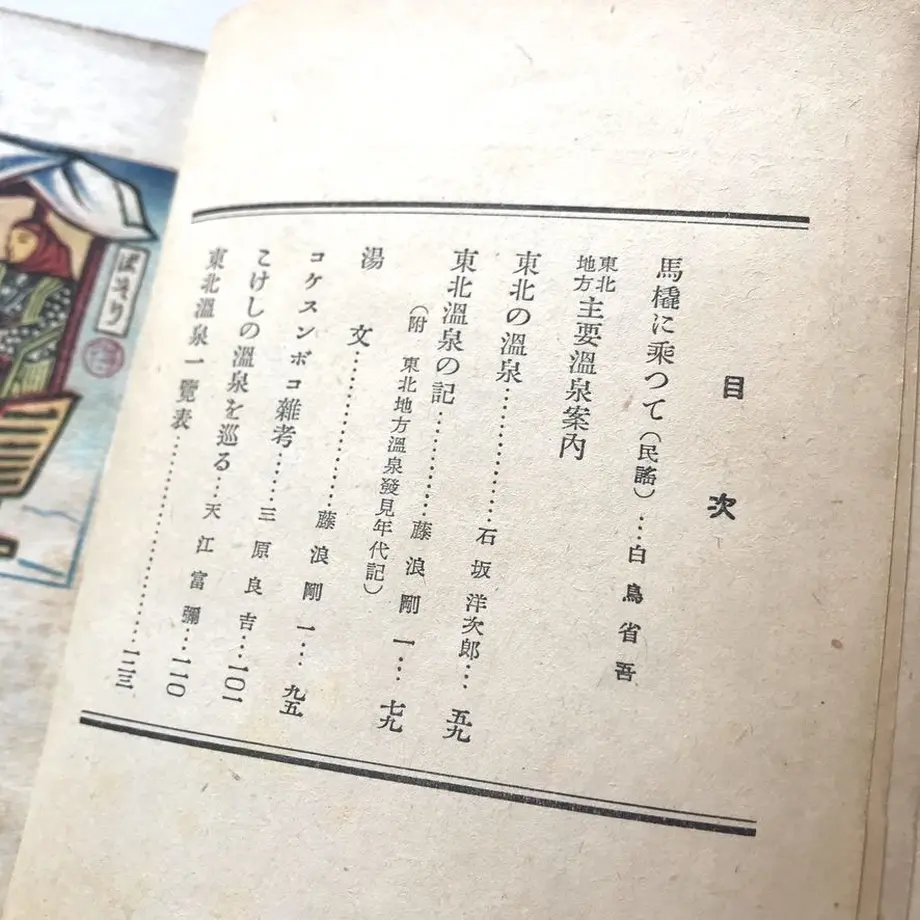 目次
馬橇に乘つて（民謠）…白鳥省吾
東北地方主要溫泉案内
東北の溫泉………石坂洋次郎…五九
東北溫泉の記………藤浪剛一…七九
（附 東北地方溫泉發見年代記）
湯文………藤浪剛一…九五
コケスンボコ雜考……三原良吉…一〇一
こけしの溫泉を巡る…天江富彌…一一〇
東北溫泉一覽表………一二三
ばそり